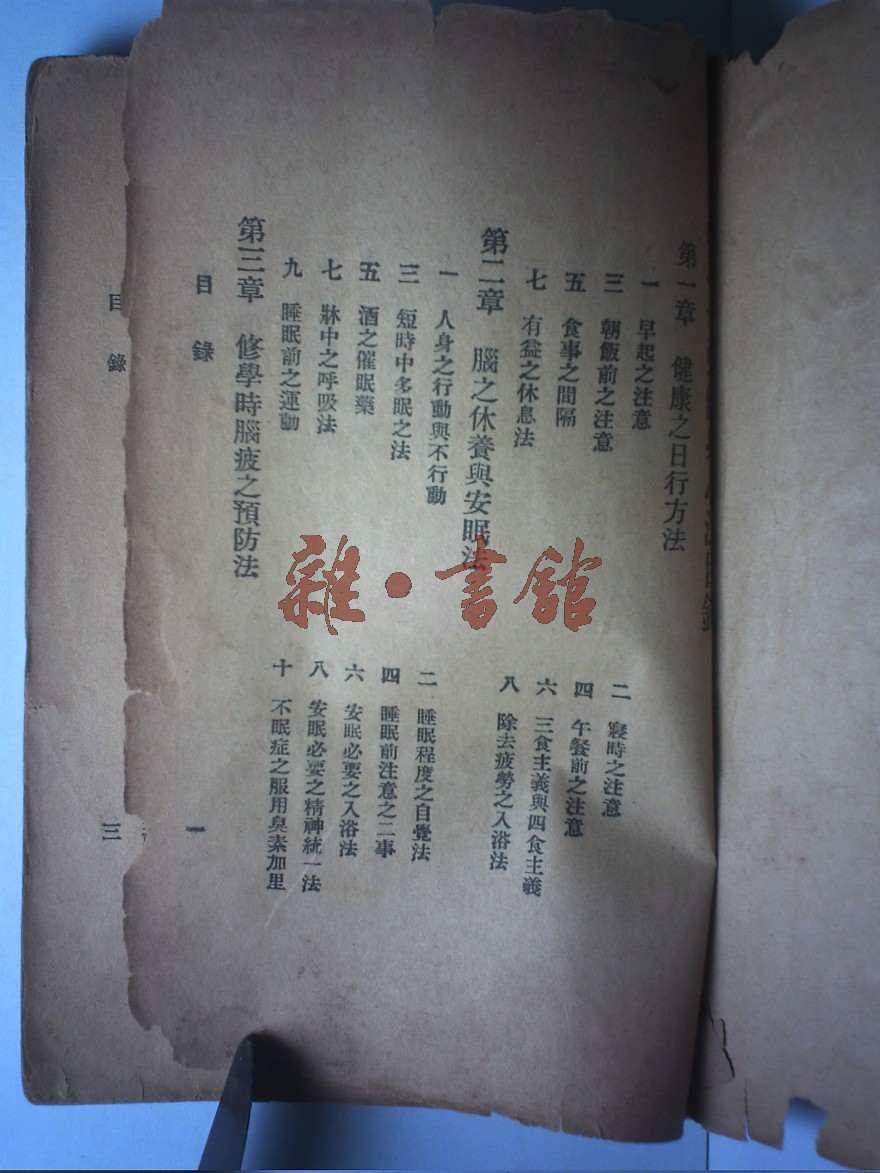 第一章　健康之日行方法
一　早起之注意
二　寢時之注意
三　朝飯前之注意
四　午餐前之注意
五　食事之間隔
六　三食主義與四食主義
七　有益之休息法
八　除去疲勞之入浴法
第二章　腦之休養與安眠法
一　人身之行動與不行動
二　睡眠程度之自覺法
三　短時中多眠之法
四　睡眠前注意之二事
五　酒之催眠藥
六　安眠必要之入浴法
七　牀中之呼吸法
八　安眠必要之精神統一法
九　睡眠前之運動
十　不眠症之服用臭素加里
第三章　修學時腦疲之預防法
目錄
一
目錄
三
雜·書館